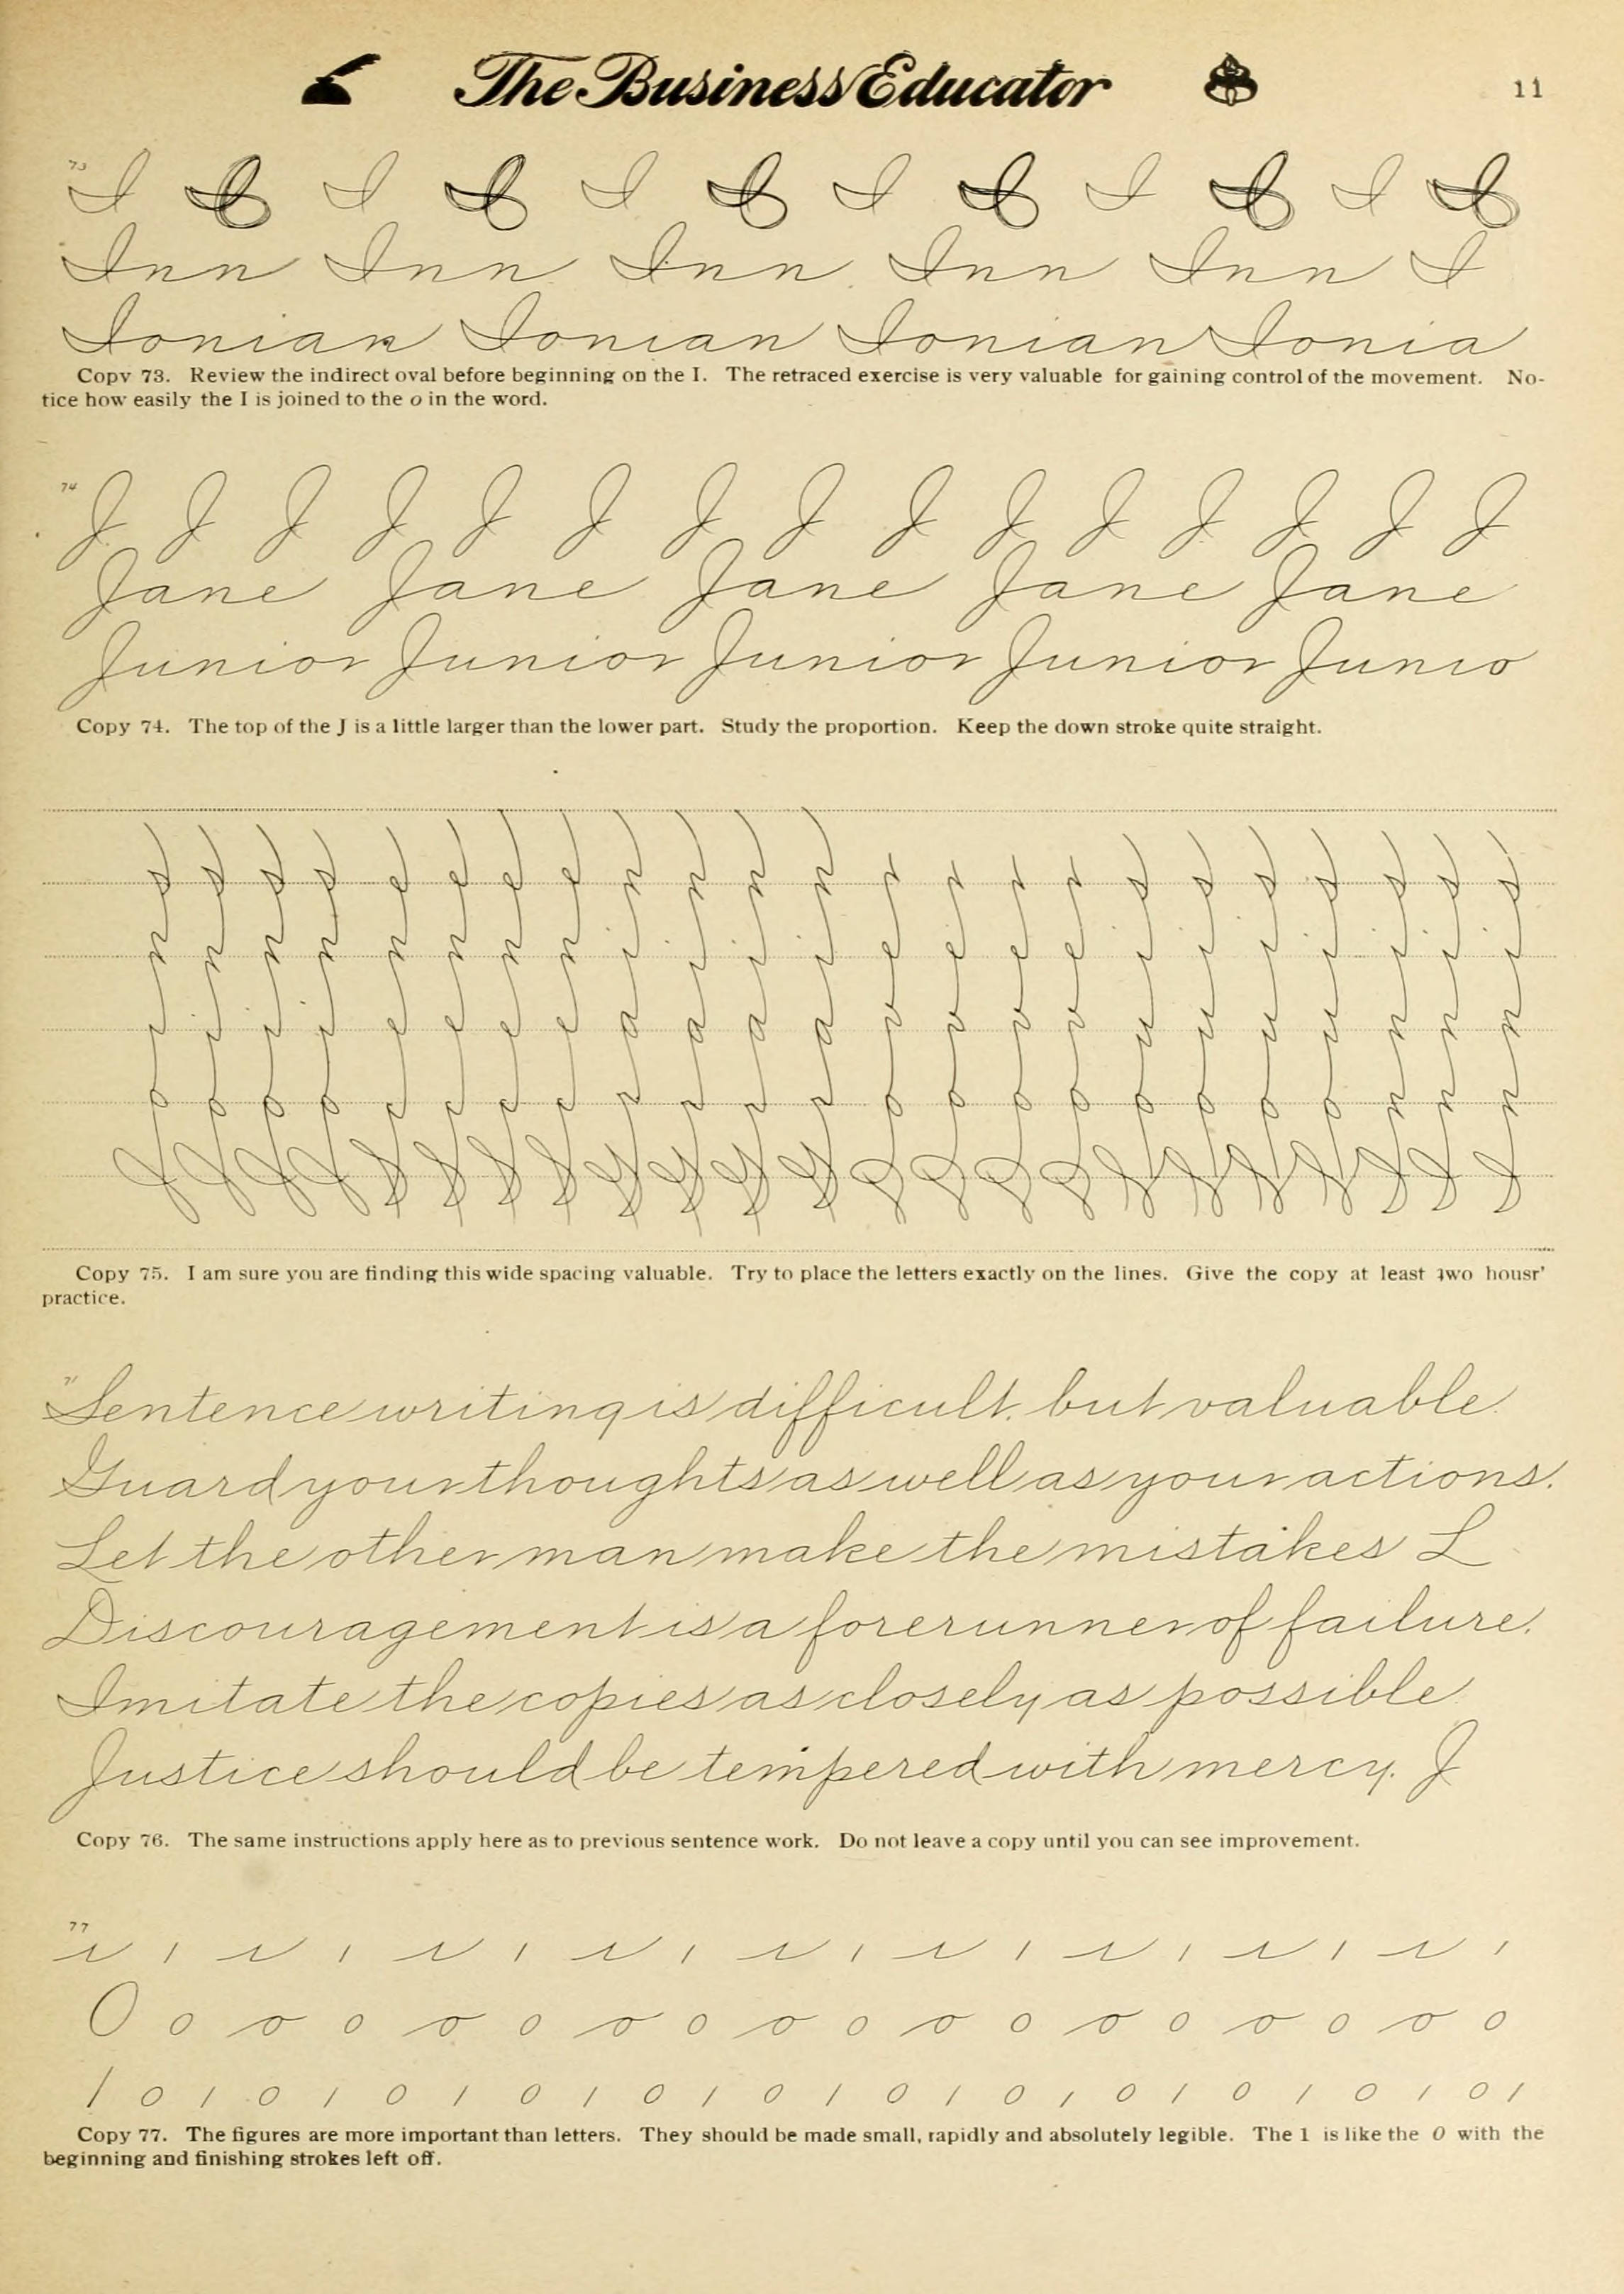 The Business Educator 11
73
I I I I I I I I I I I I
Inn Inn Inn Inn Inn I
Ionian Ionian Ionian Ionia
Copy 73. Review the indirect oval before beginning on the I. The retraced exercise is very valuable for gaining control of the movement. No-
tice how easily the I is joined to the o in the word.
74
J J J J J J J J J J J J J J J
Jane Jane Jane Jane Jane
Junior Junior Junior Junior Junio
Copy 74. The top of the J is a little larger than the lower part. Study the proportion. Keep the down stroke quite straight.
Joins
Joins
Joins
Joins
Scene
Scene
Scene
Scene
Louis
Louis
Louis
Louis
Copy 75. I am sure you are finding this wide spacing valuable. Try to place the letters exactly on the lines. Give the copy at least two housr'
practice.
Sentence writing is difficult, but valuable.
Guard your thoughts as well as your actions.
Let the other man make the mistakes L
Discouragement is a forerunner of failure.
Imitate the copies as closely as possible.
Justice should be tempered with mercy. J
Copy 76. The same instructions apply here as to previous sentence work. Do not leave a copy until you can see improvement.
77
i 1 i 1 i 1 i 1 i 1 i 1 i 1 i 1 i 1
O o o o o o o o o o o o o o o o o o
1 0 1 0 1 0 1 0 1 0 1 0 1 0 1 0 1 0 1 0 1 0 1 0 1
Copy 77. The figures are more important than letters. They should be made small, rapidly and absolutely legible. The 1 is like the O with the
beginning and finishing strokes left off.